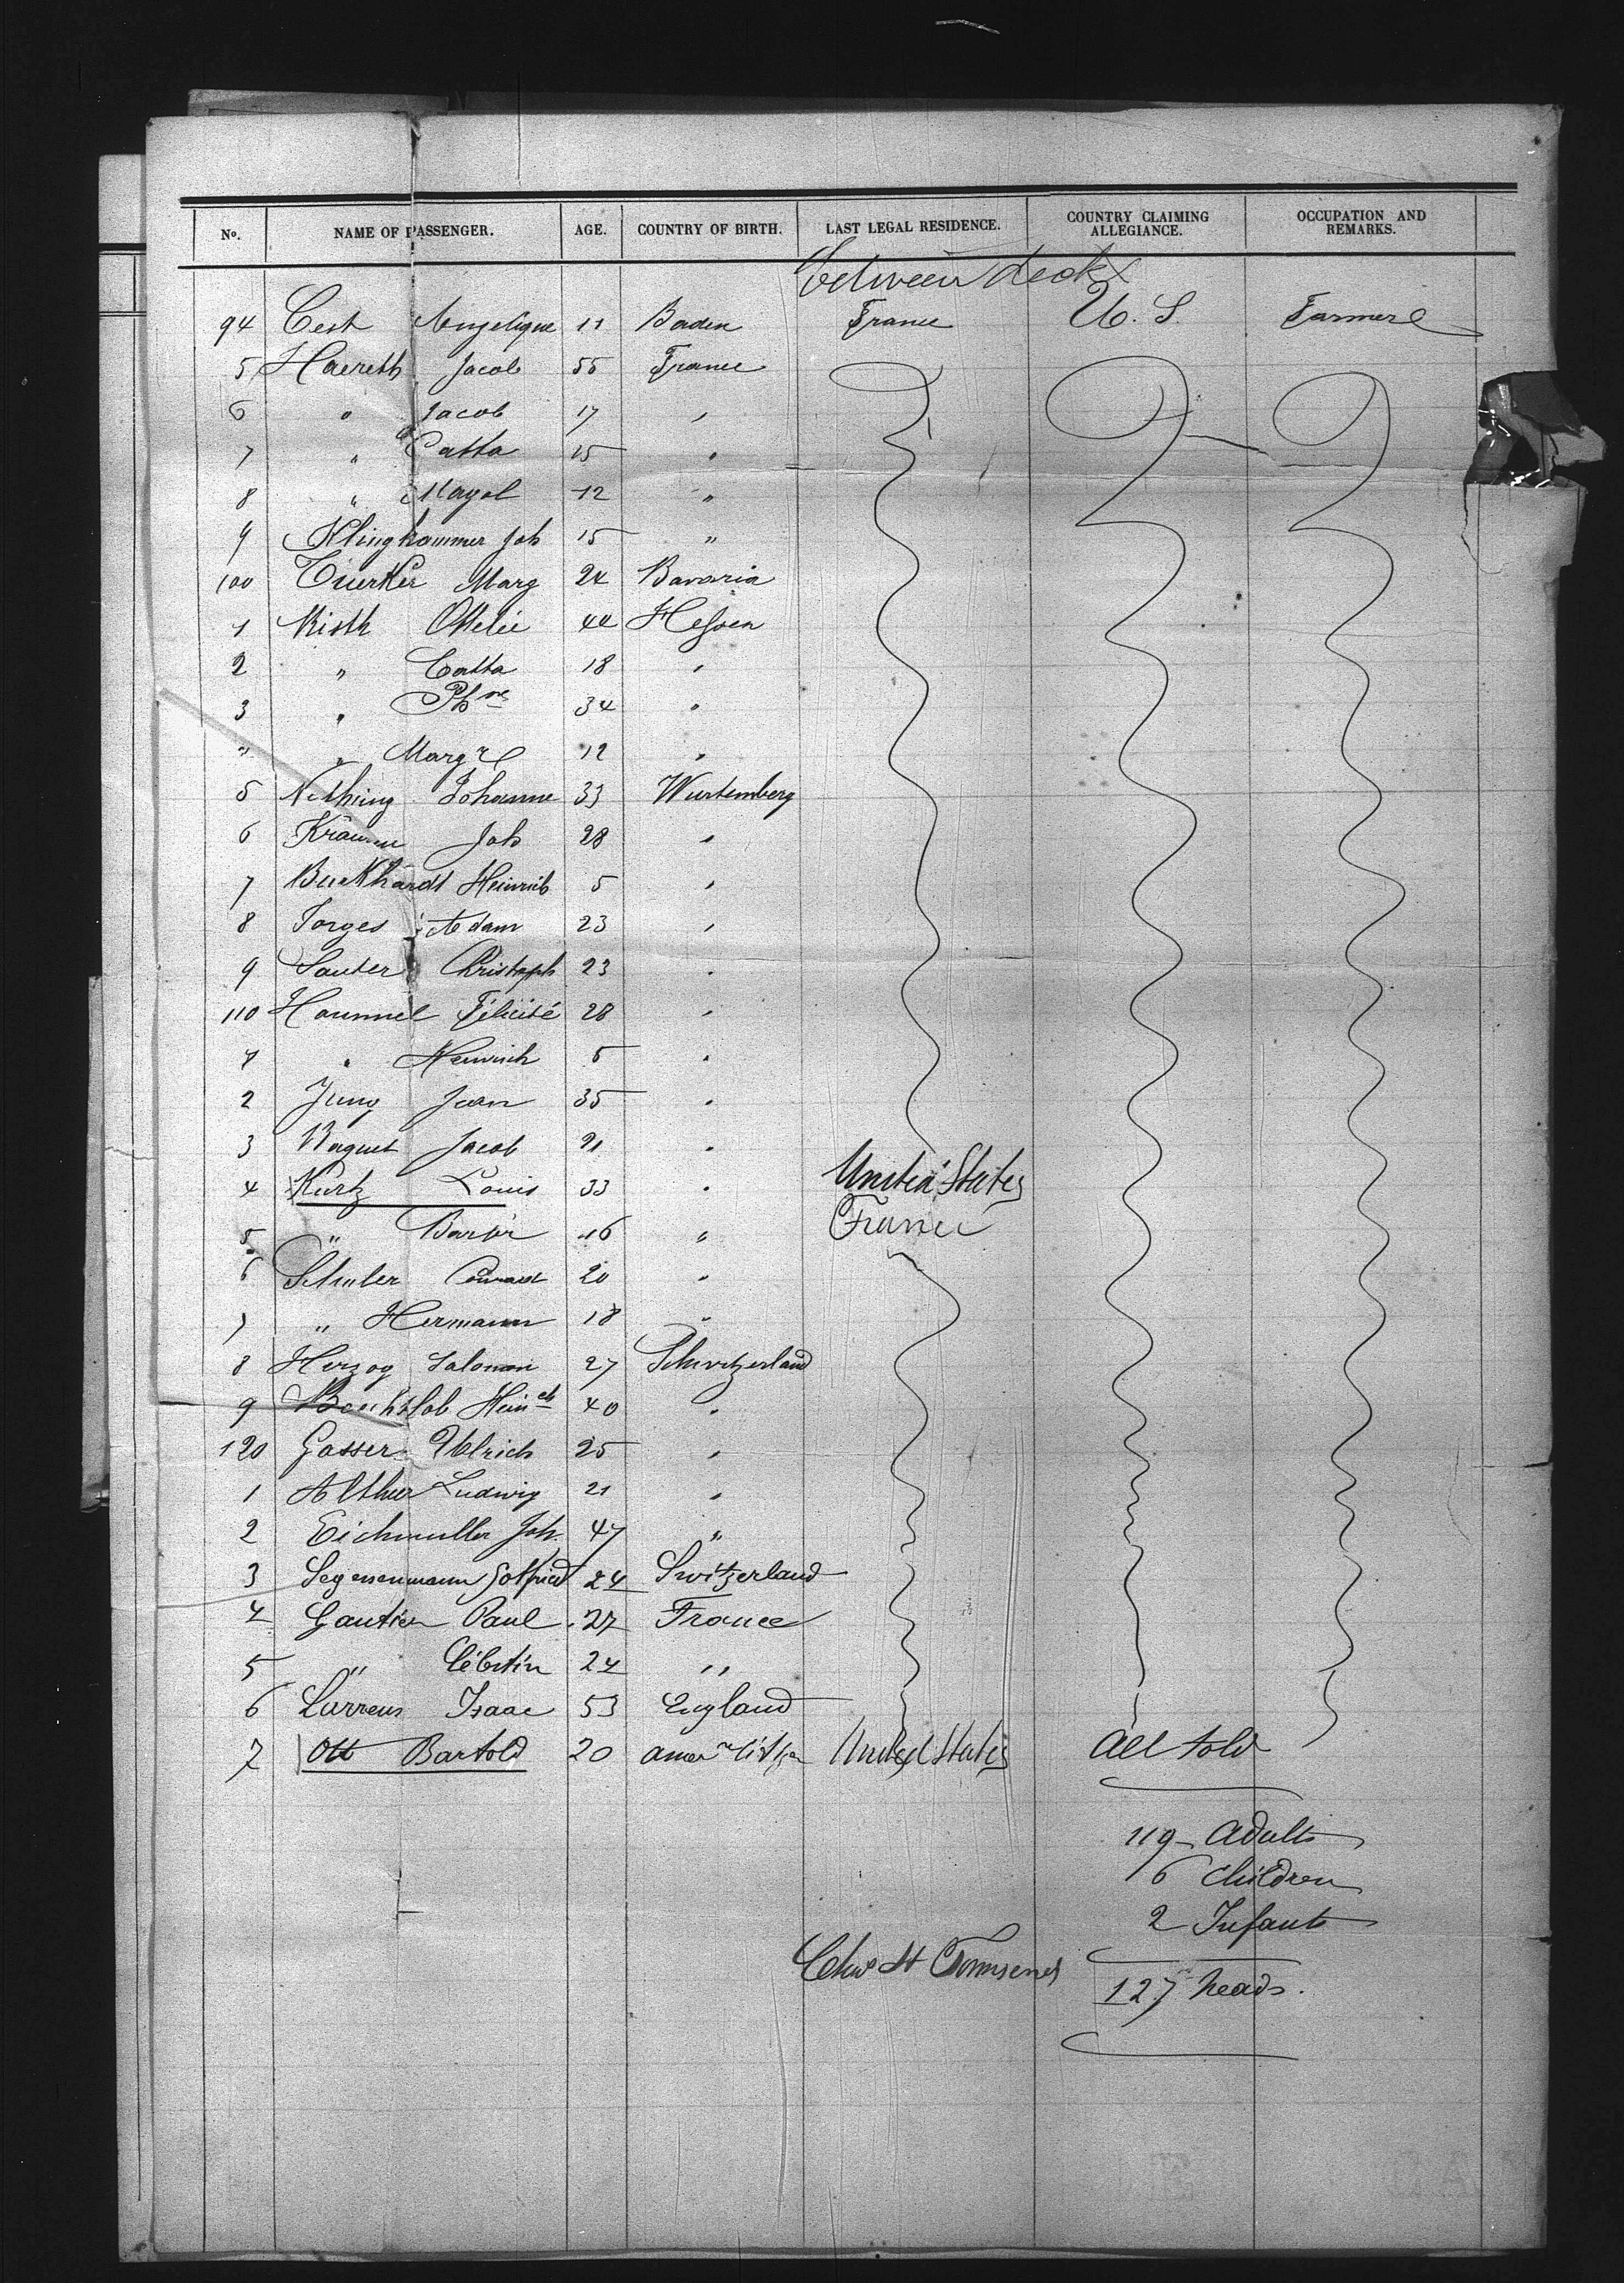 No. NAME OF PASSENGER. AGE. COUNTRY OF BIRTH. LAST LEGAL RESIDENCE. COUNTRY CLAIMING ALLEGIANCE. OCCUPATION AND REMARKS.
between deck
94 Angelique 11 Baden France U. S. Farmer
5 Haereth Jacob 55 France
6 " Jacob 17 "
7 " Catta 15 "
8 " 12 "
9 Klinghammer Joh 15 "
100 Marg 24 Bavaria
1 44 Hessen
2 " Catta 18 "
3 " 34 "
" " Margr 12 "
5 Johanne 33 Wurtemberg
6 Joh 28 "
7 Burkhardt Heinrich 5 "
8 Jorges Adam 23 "
9 Sauter Christoph 23 "
110 Hammel Félicité 28 "
1 " Heinrich 5 "
2 Jung Jean 35 "
3 Jacob 21 "
4 Kurtz Louis 33 " United States
5 " 16 " France
6 Schuler Conrad 20 "
7 " Hermann 18 "
8 Herzog Salomon 27 Schwitzerland
9 Heinch 40 "
120 Gasser Ulrich 25 "
1 Ludwig 21 "
2 Eichmuller Joh. 47 "
3 Segessenmann Gotfried 24 Switzerland
4 Gautier Paul 27 France
5 " Célestin 24 "
6 Isaac 53 England
7 Ott Bartold 20 United States All told
119 Adults
6 Children
2 Infants
Townsend
127 heads.